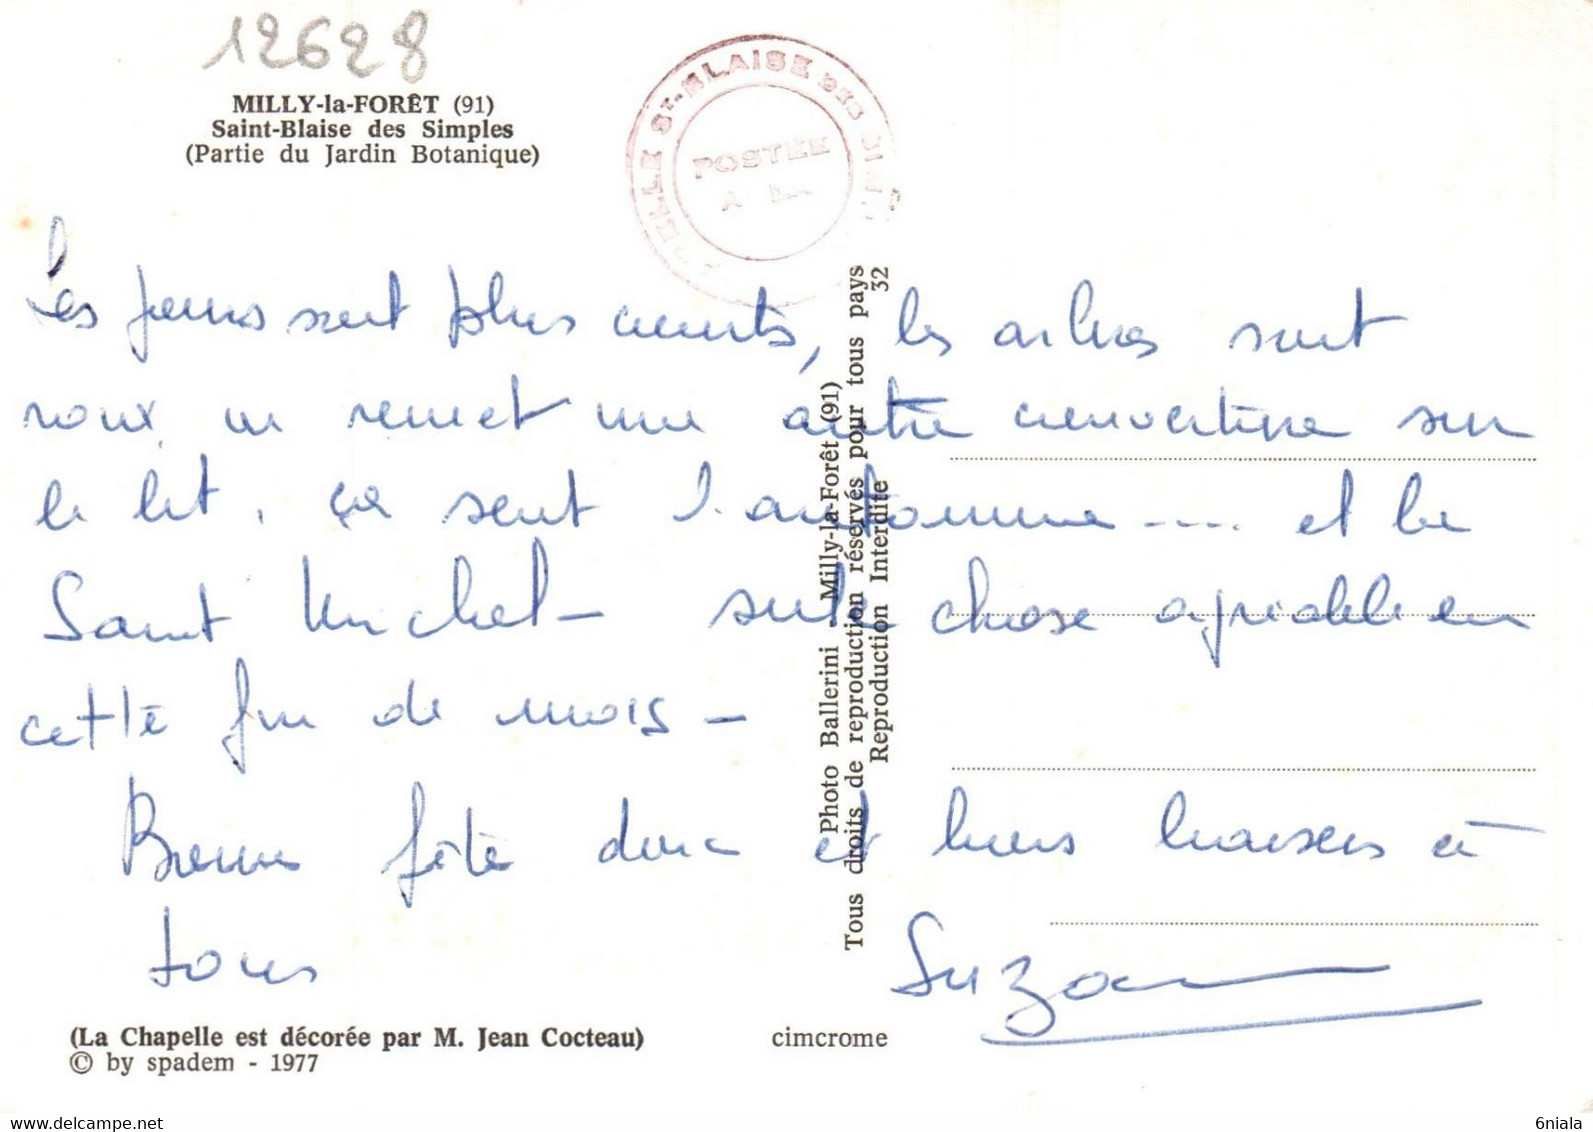 12628
MILLY-la-FORÊT (91)
Saint-Blaise des Simples
(Partie du Jardin Botanique)
ST-BLAISE DES
POSTÉE
A LA
Les jours sont plus courts, les arbres sont
roux, on remet une autre couverture sur
le lit, ça sent l'automne .... et la
Saint Michel - seule chose agréable en
cette fin de mois -
Bonne fête donc et bons baisers à
tous
Suzanne
Photo Ballerini Milly-la-Forêt (91)
Tous droits de reproduction réservés pour tous pays
Reproduction Interdite 32
(La Chapelle est décorée par M. Jean Cocteau)
© by spadem - 1977
cimcrome
delcampe.net
6niala